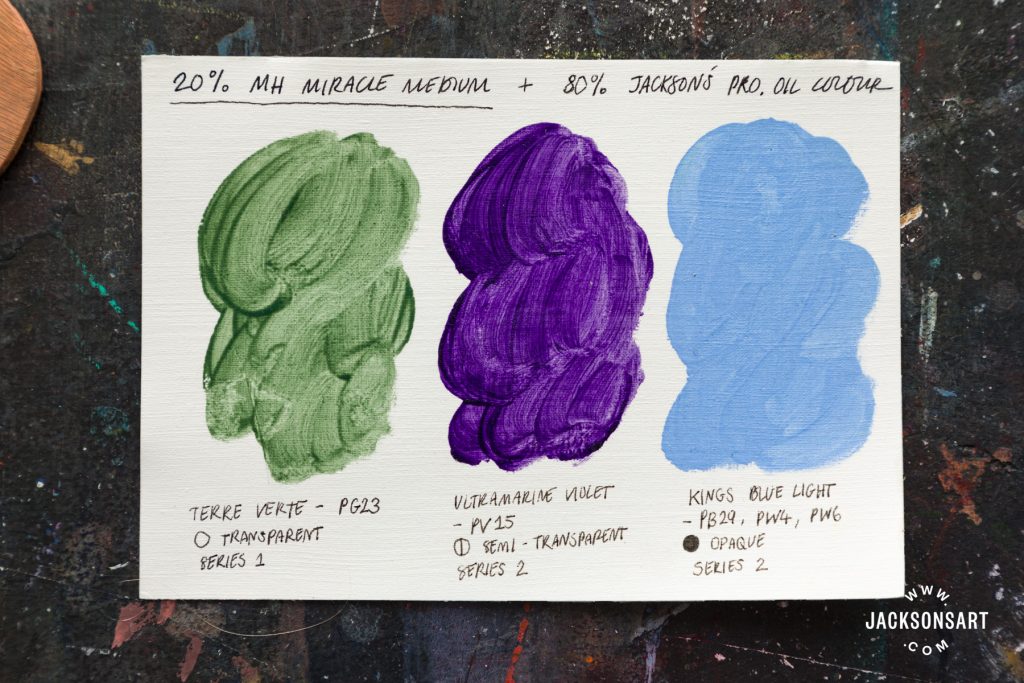 20% MH MIRACLE MEDIUM + 80% JACKSON'S PRO. OIL COLOUR
TERRE VERTE - PG23
TRANSPARENT
SERIES 1
ULTRAMARINE VIOLET
- PV15
SEMI-TRANSPARENT
SERIES 2
KINGS BLUE LIGHT
- PB29, PW4, PW6
OPAQUE
SERIES 2
WWW.
JACKSONSART
.COM